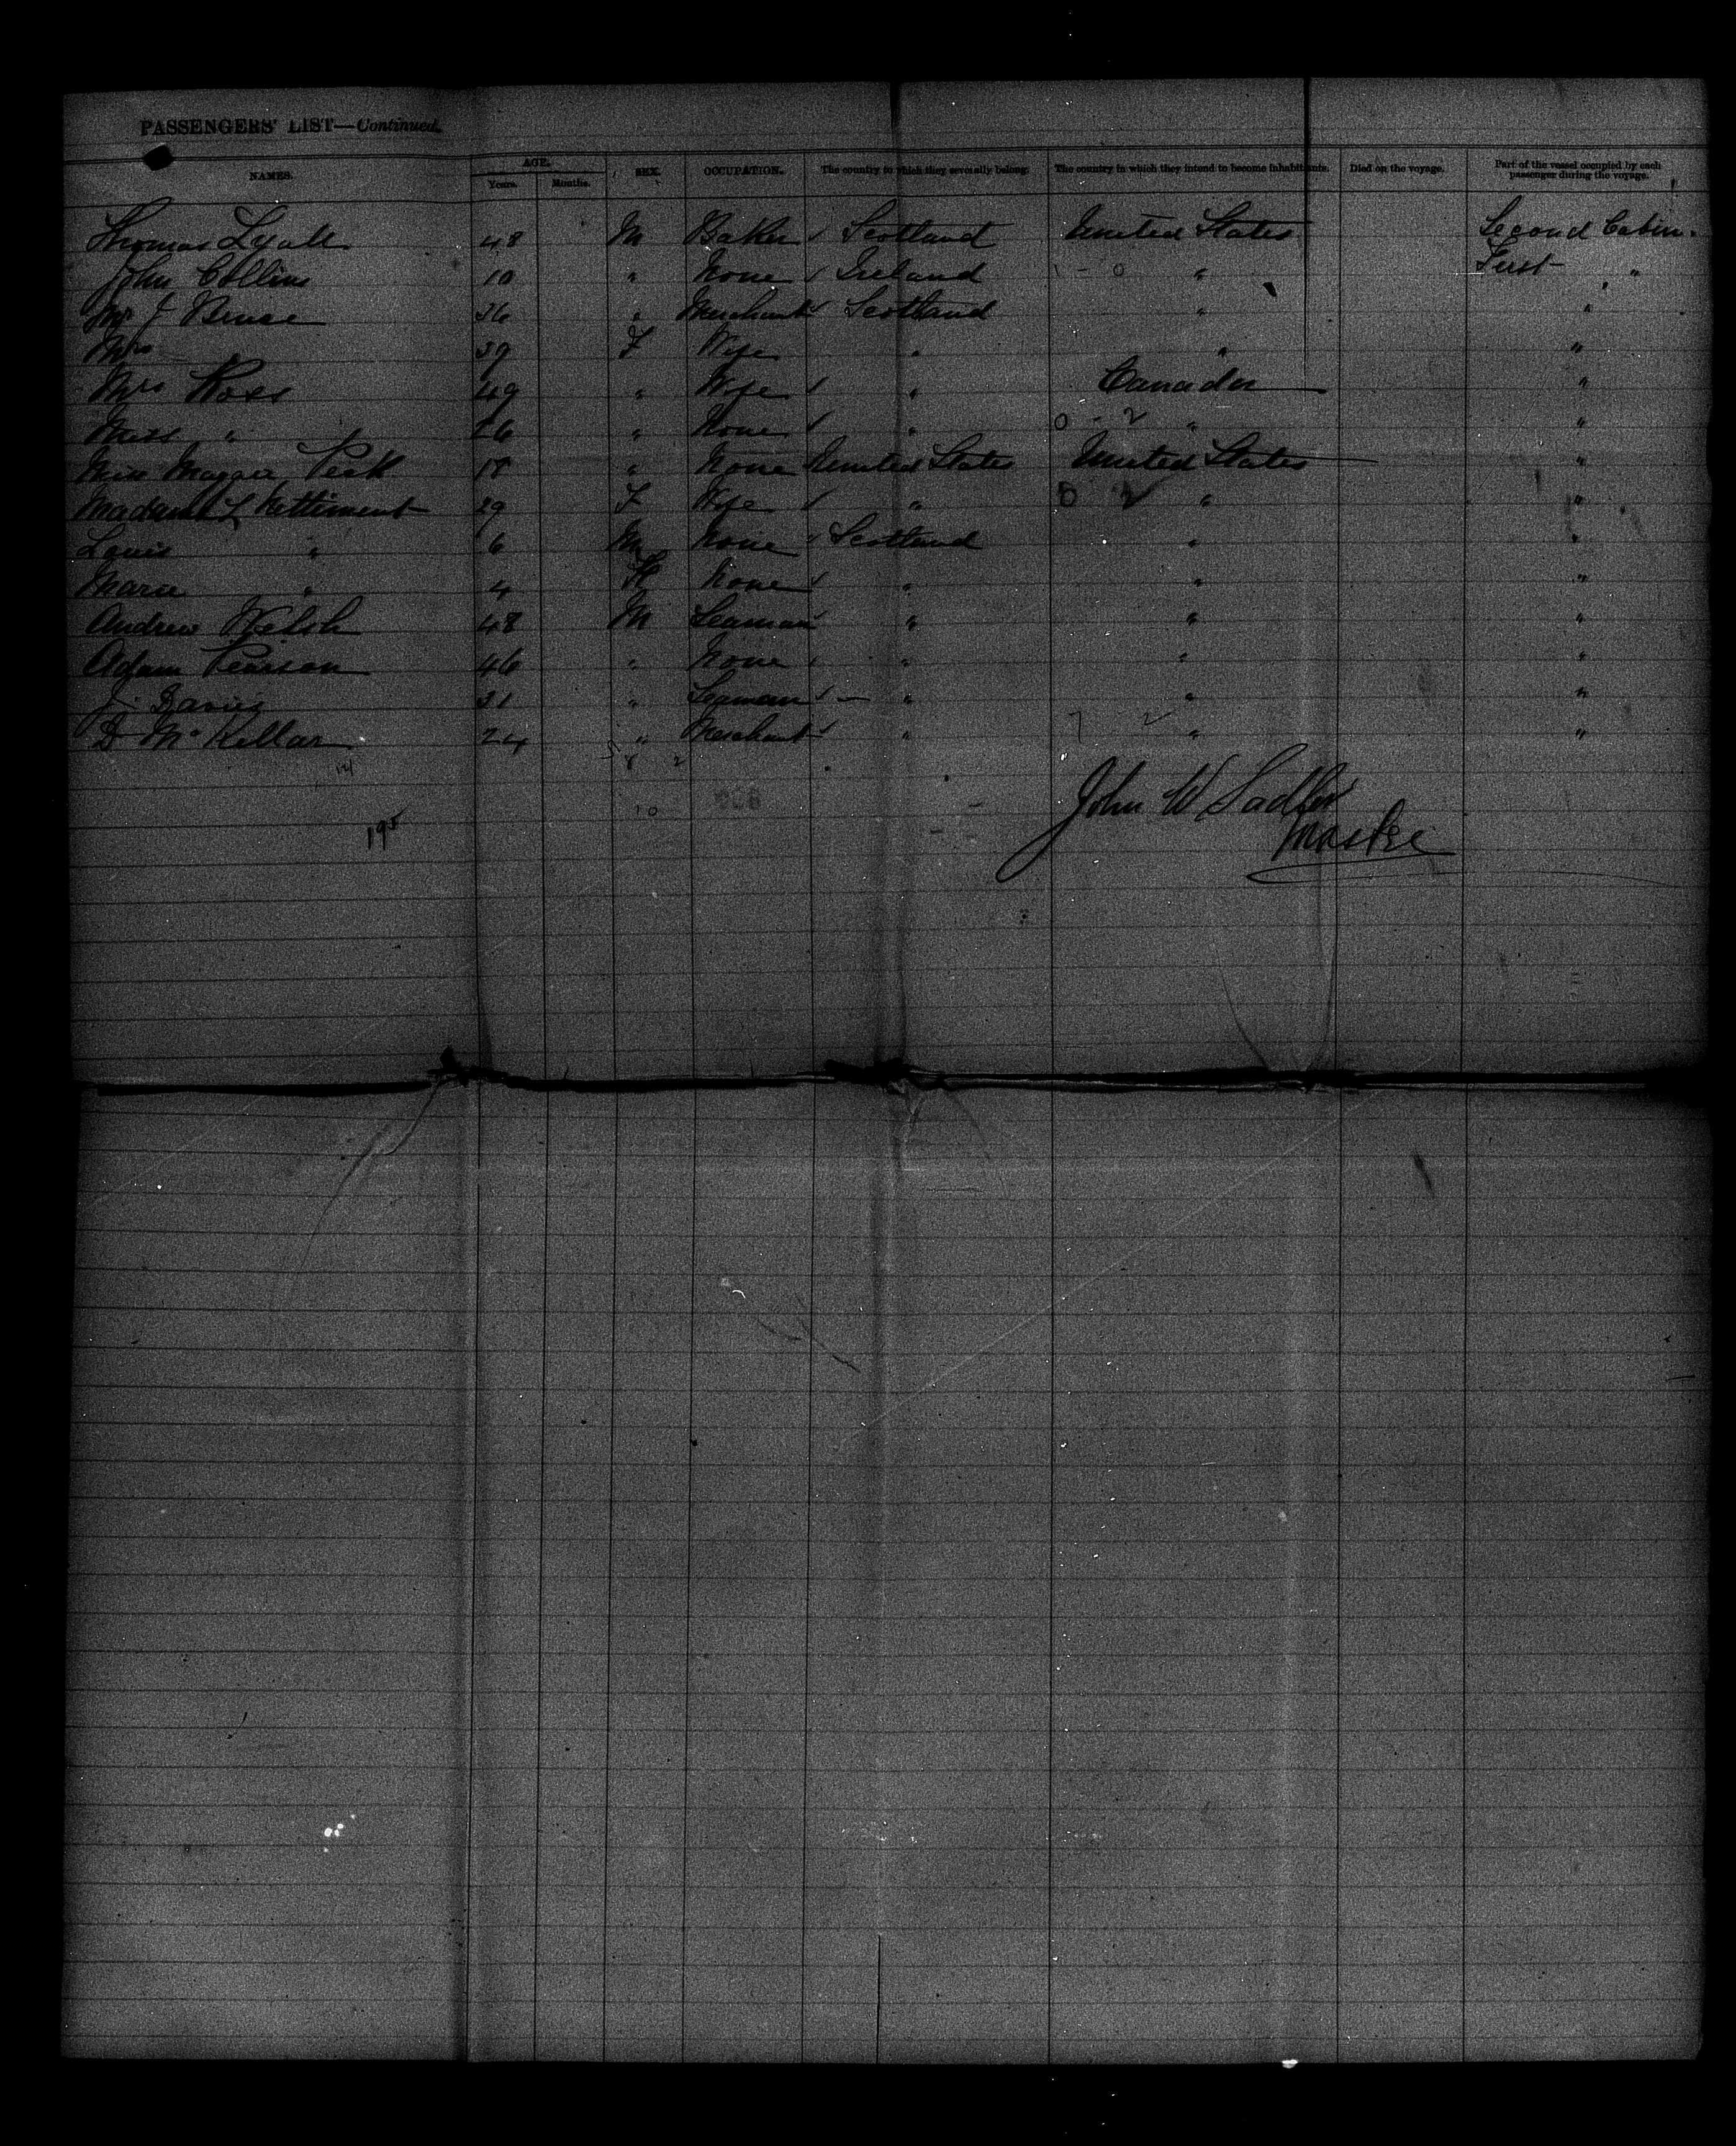 PASSENGERS' LIST—Continued.
NAMES. AGE. Years. Months. SEX. OCCUPATION. The country to which they severally belong. The country in which they intend to become inhabitants. Died on the voyage. Part of the vessel occupied by each passenger during the voyage.
Thomas Lyall 48 M Baker Scotland United States Second Cabin.
John Collins 10 " None Ireland " First "
Mr J Bruce 36 " Merchant Scotland " "
Mrs 39 F Wife " " "
Mrs Ross 49 " Wife " Canada "
Miss " 26 " None " " "
Miss Maggie Peck 18 " None United States United States "
Madame L Nettiment 29 F Wife " " "
Louis " 6 M None Scotland " "
Marie " 4 F None " " "
Andrew Welsh 48 M Seaman " " "
Adam Pearson 46 " None " " "
J. Davies 31 " Seaman " " "
D McKellar 24 " Merchant " " "
14
195
10
John W Sadler
Master